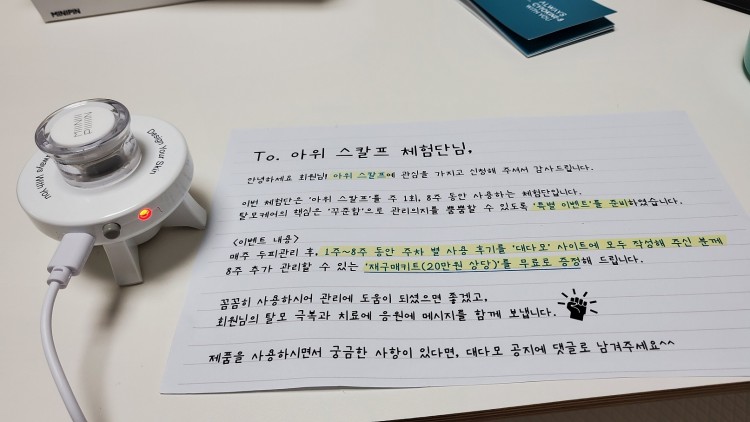 MINIPIN
ALWAYS
WITH YOU
MINII
PIIIN
Design Your Skin
Always With You
To. 아위 스칼프 체험단님,
안녕하세요 회원님! 아위 스칼프에 관심을 가지고 신청해 주셔서 감사드립니다.
이번 체험단은 '아위 스칼프'를 주 1회, 8주 동안 사용하는 체험단입니다.
탈모케어의 핵심은 '꾸준함'으로 관리의지를 뿜뿜할 수 있도록 '특별 이벤트'를 준비하였습니다.
<이벤트 내용>
매주 두피관리 후, 1주~8주 동안 주차 별 사용 후기를 '대다모' 사이트에 모두 작성해 주신 분께
8주 추가 관리할 수 있는 '재구매키트(20만원 상당)'를 무료로 증정해 드립니다.
꼼꼼히 사용하시어 관리에 도움이 되셨으면 좋겠고,
회원님의 탈모 극복과 치료에 응원에 메시지를 함께 보냅니다.
제품을 사용하시면서 궁금한 사항이 있다면, 대다모 공지에 댓글로 남겨주세요^^